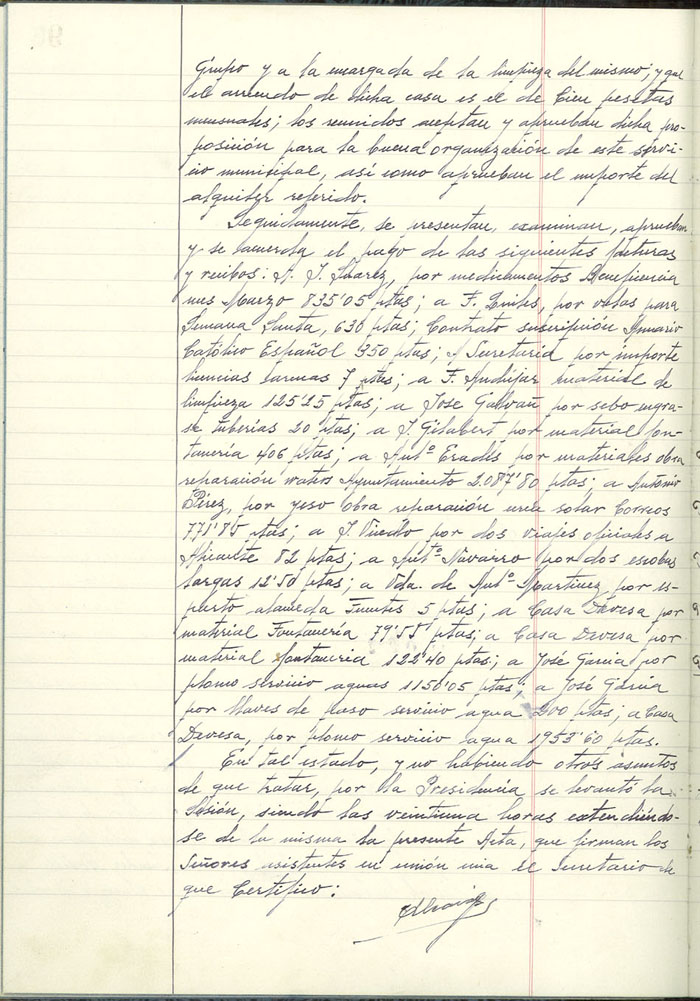 Grupo y a la encargada de la limpieza del mismo; y que
el arriendo de dicha casa es el de Cien pesetas
mensuales; los reunidos aceptan y aprueban dicha pro-
posición para la buena organización de este servi-
cio municipal, así como aprueban el importe del
alquiler referido.
Seguidamente, se presentan, examinan, aprueban
y se acuerda el pago de las siguientes facturas
y recibos: A. J. Suarez, por medicamentos Beneficencia
mes Marzo 835'05 ptas; a F. por velas para
Semana Santa, 630 ptas; Contrato suscripción Anuario
Católico Español 350 ptas; A Secretaría por importe
licencias 7 ptas; a F. Andújar material de
limpieza 125'25 ptas; a José Galvañ por sebo engra-
se tuberías 20 ptas; a J. Gilabert por material fon-
tanería 406 ptas; a Antº Eradés por materiales obra
reparación waters Ayuntamiento 2.087'80 ptas; a Antonio
Pérez, por yeso obra reparación solar Correos
771'85 ptas; a J. por dos viajes oficiales a
Alicante 82 ptas; a Antº Navarro por dos escobas
largas 12'50 ptas; a Vda. de Antº Martinez por es-
parto alameda Fuentes 5 ptas; a Casa Devesa por
material Fontanería 79'55 ptas; a Casa Devesa por
material fontaneria 122'40 ptas; a José Garcia por
plomo servicio aguas 1150'05 ptas; a José García
por llaves de paso servicio agua 200 ptas; a Casa
Devesa, por plomo servicio agua 1953'60 ptas.
En tal estado, y no habiendo otros asuntos
de que tratar, por la Presidencia se levantó la
Sesión, siendo las veintiuna horas extendiéndo-
se de la misma la presente Acta, que firman los
Señores asistentes en unión mia el Secretario de
que Certifico: